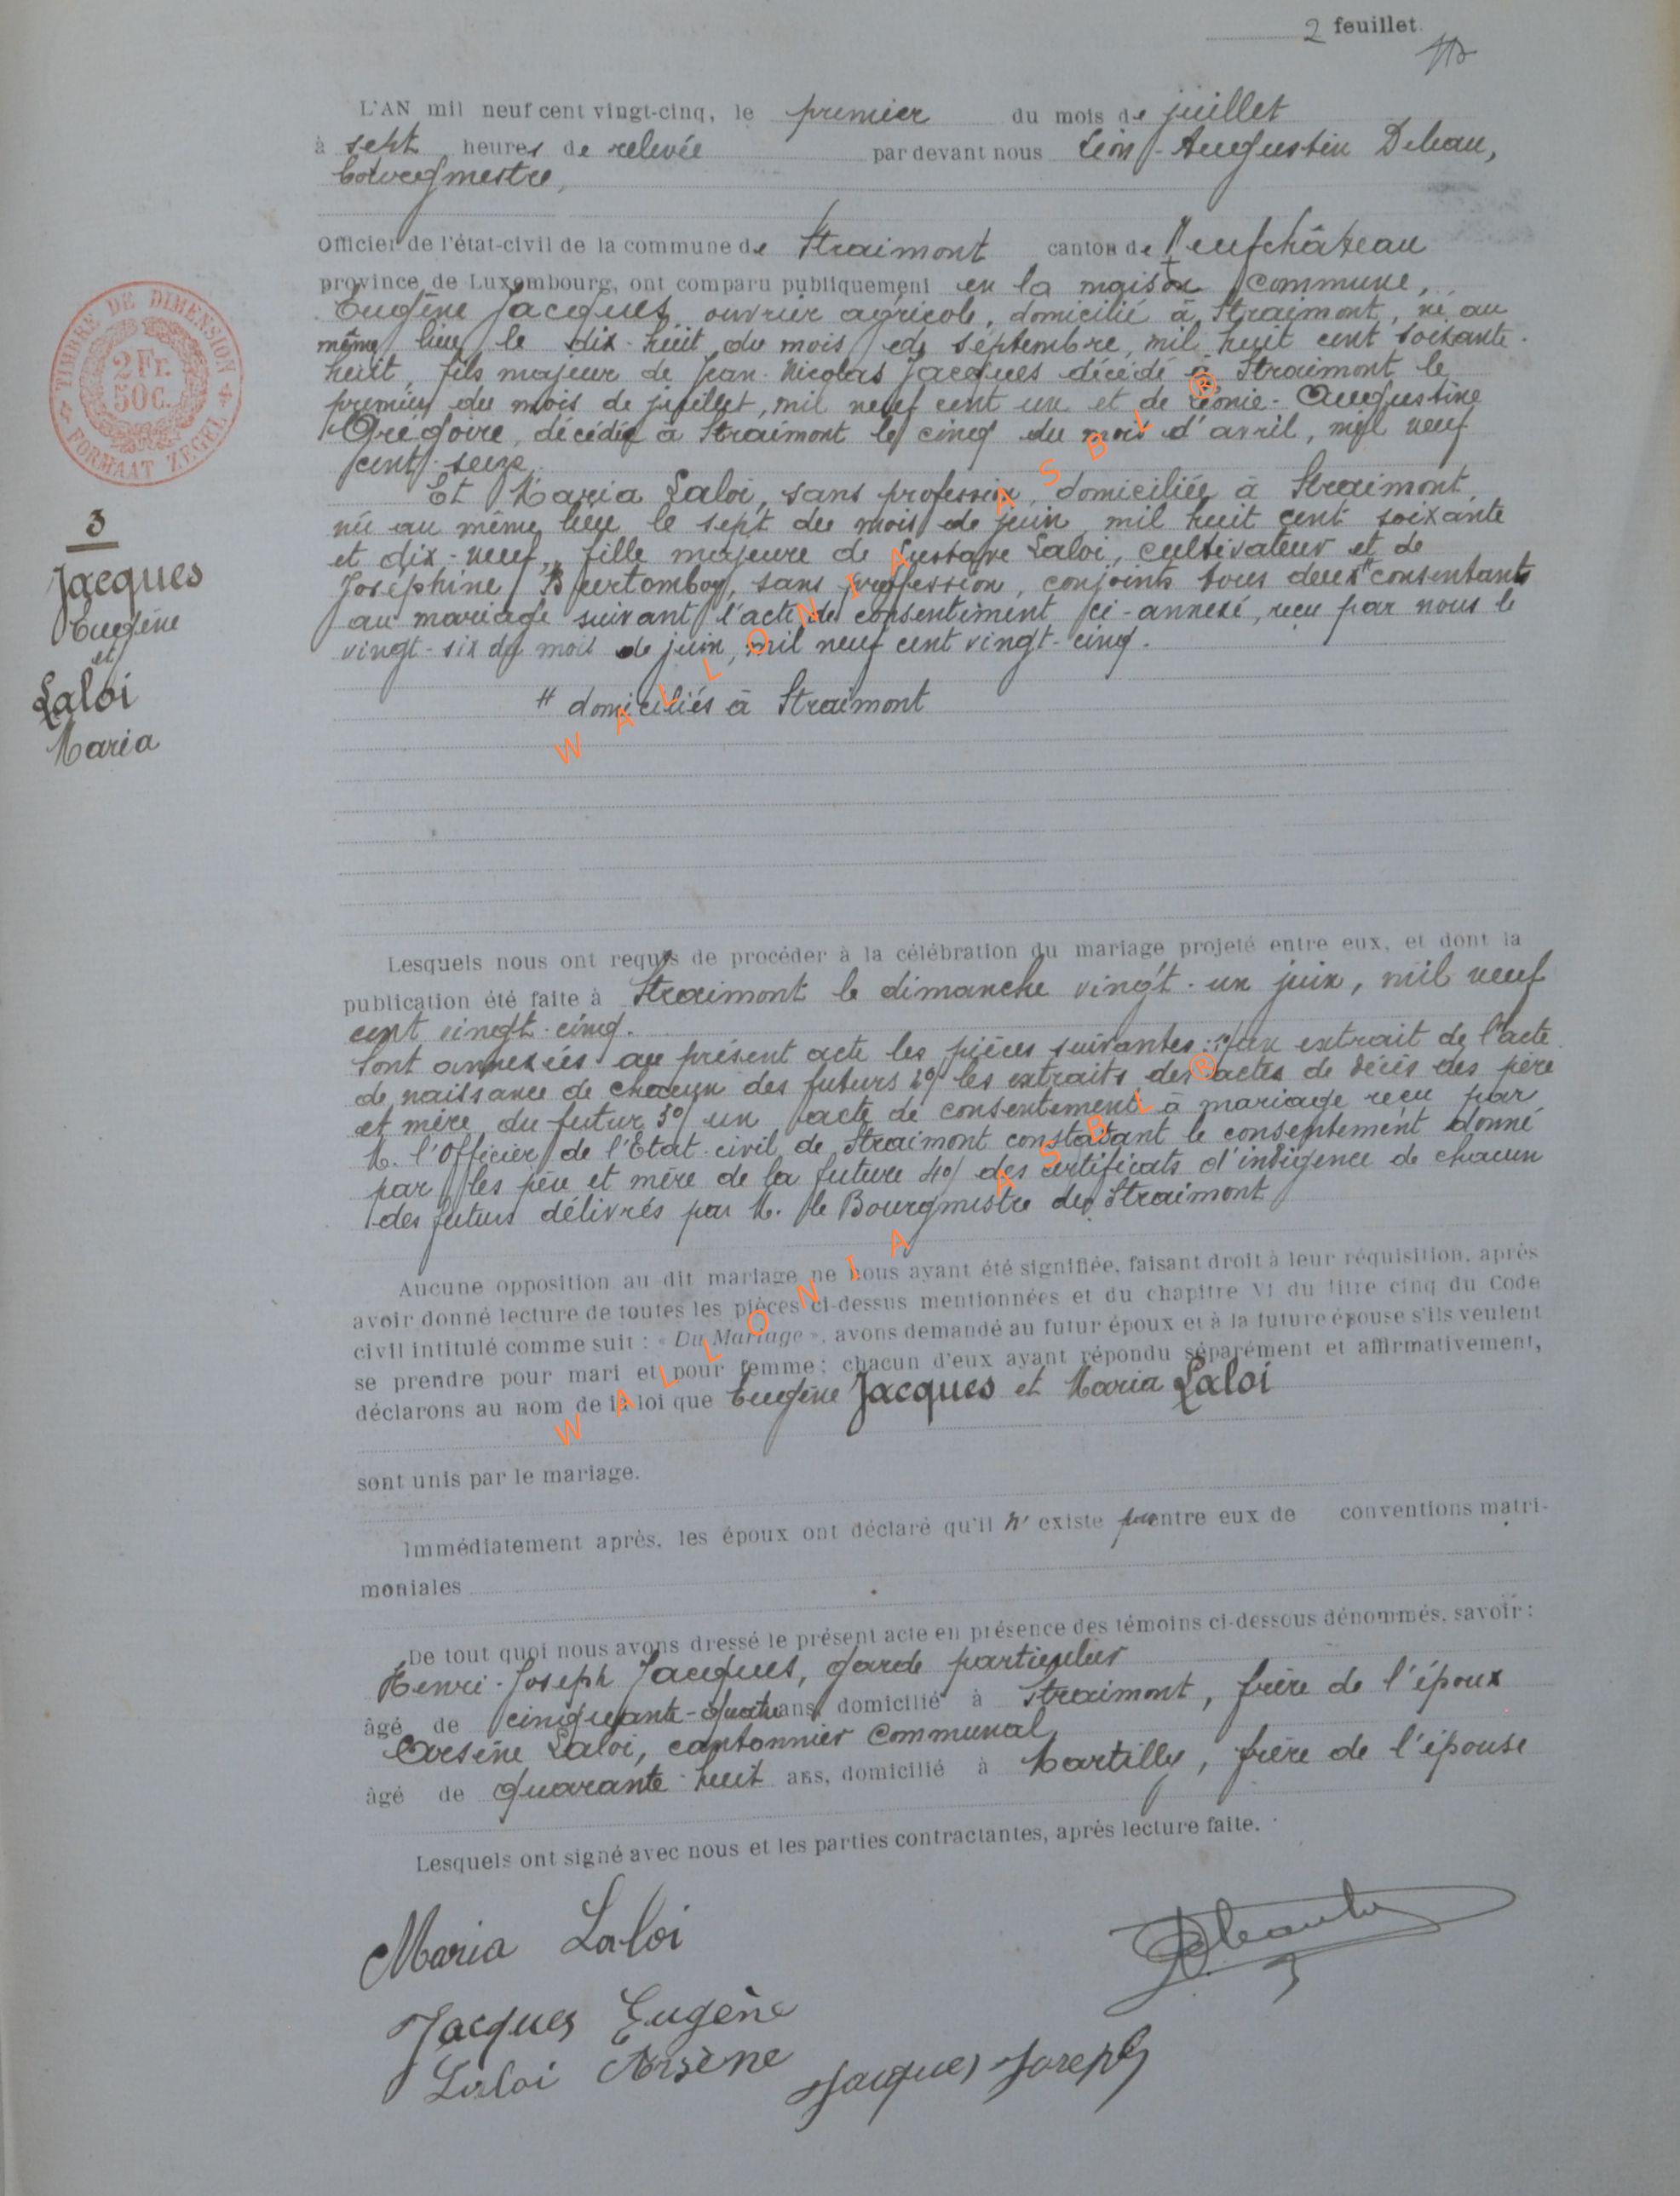 2 feuillet.
L'AN mil neuf cent vingt-cinq, le premier du mois de juillet
à sept heures de relevée par devant nous Léon-Augustin Deleau,
bourgmestre,
Officier de l'état-civil de la commune de Straimont canton de Neufchâteau
province de Luxembourg, ont comparu publiquement en la maison commune,
Eugène Jacques, ouvrier agricole, domicilié à Straimont, né au
même lieu le dix-huit du mois de septembre, mil huit cent soixante-
huit, fils majeur de Jean-Nicolas Jacques décédé à Straimont le
premier du mois de juillet, mil neuf cent un et de Léonie-Augustine
Grégoire, décédée à Straimont le cinq du mois d'avril, mil neuf
cent-seize.
Et Maria Laloi, sans profession, domiciliée à Straimont,
née au même lieu le sept du mois de juin mil huit cent soixante
et dix-neuf, fille majeure de Gustave Laloi, cultivateur et de
Joséphine, sans profession, conjoints tous deux " consentants
au mariage suivant l'acte de consentement ci-annexé, reçu par nous le
vingt-six du mois de juin, mil neuf cent vingt-cinq.
" domiciliés à Straimont
TIMBRE DE DIMENSION
2 Fr.
50 C.
FORMAAT ZEGEL
3
Jacques
Eugène
et
Laloi
Maria
Lesquels nous ont requis de procéder à la célébration du mariage projeté entre eux, et dont la
publication été faite à Straimont le dimanche vingt-un juin, mil neuf
cent vingt-cinq.
Sont annexées au présent acte les pièces suivantes: 1°/ un extrait de l'acte
de naissance de chacun des futurs 2°/ les extraits des actes de décès des père
et mère du futur 3°/ un acte de consentement à mariage reçu par
M. l'Officier de l'Etat-civil de Straimont constatant le consentement donné
par les père et mère de la future 4°/ des certificats d'indigence de chacun
des futurs délivrés par M. le Bourgmestre de Straimont
Aucune opposition au dit mariage ne nous ayant été signifiée, faisant droit à leur réquisition, après
avoir donné lecture de toutes les pièces ci-dessus mentionnées et du chapitre VI du titre cinq du Code
civil intitulé comme suit : « Du Mariage », avons demandé au futur époux et à la future épouse s'ils veulent
se prendre pour mari et pour femme; chacun d'eux ayant répondu séparément et affirmativement,
déclarons au nom de la loi que Eugène Jacques et Maria Laloi
sont unis par le mariage.
Immédiatement après, les époux ont déclaré qu'il n' existe pas entre eux de conventions matri-
moniales
De tout quoi nous avons dressé le présent acte en présence des témoins ci-dessous dénommés, savoir :
Henri-Joseph Jacques, garde particulier
âgé de cinquante-quatre ans, domicilié à Straimont, frère de l'époux
Arsène Laloi, cantonnier communal
âgé de quarante-huit ans, domicilié à Martilly, frère de l'épouse
Lesquels ont signé avec nous et les parties contractantes, après lecture faite.
Maria Laloi
Jacques Eugène
Laloi Arsène Jacques Joseph
WALLONIA ASBL ®
WALLONIA ASBL ®